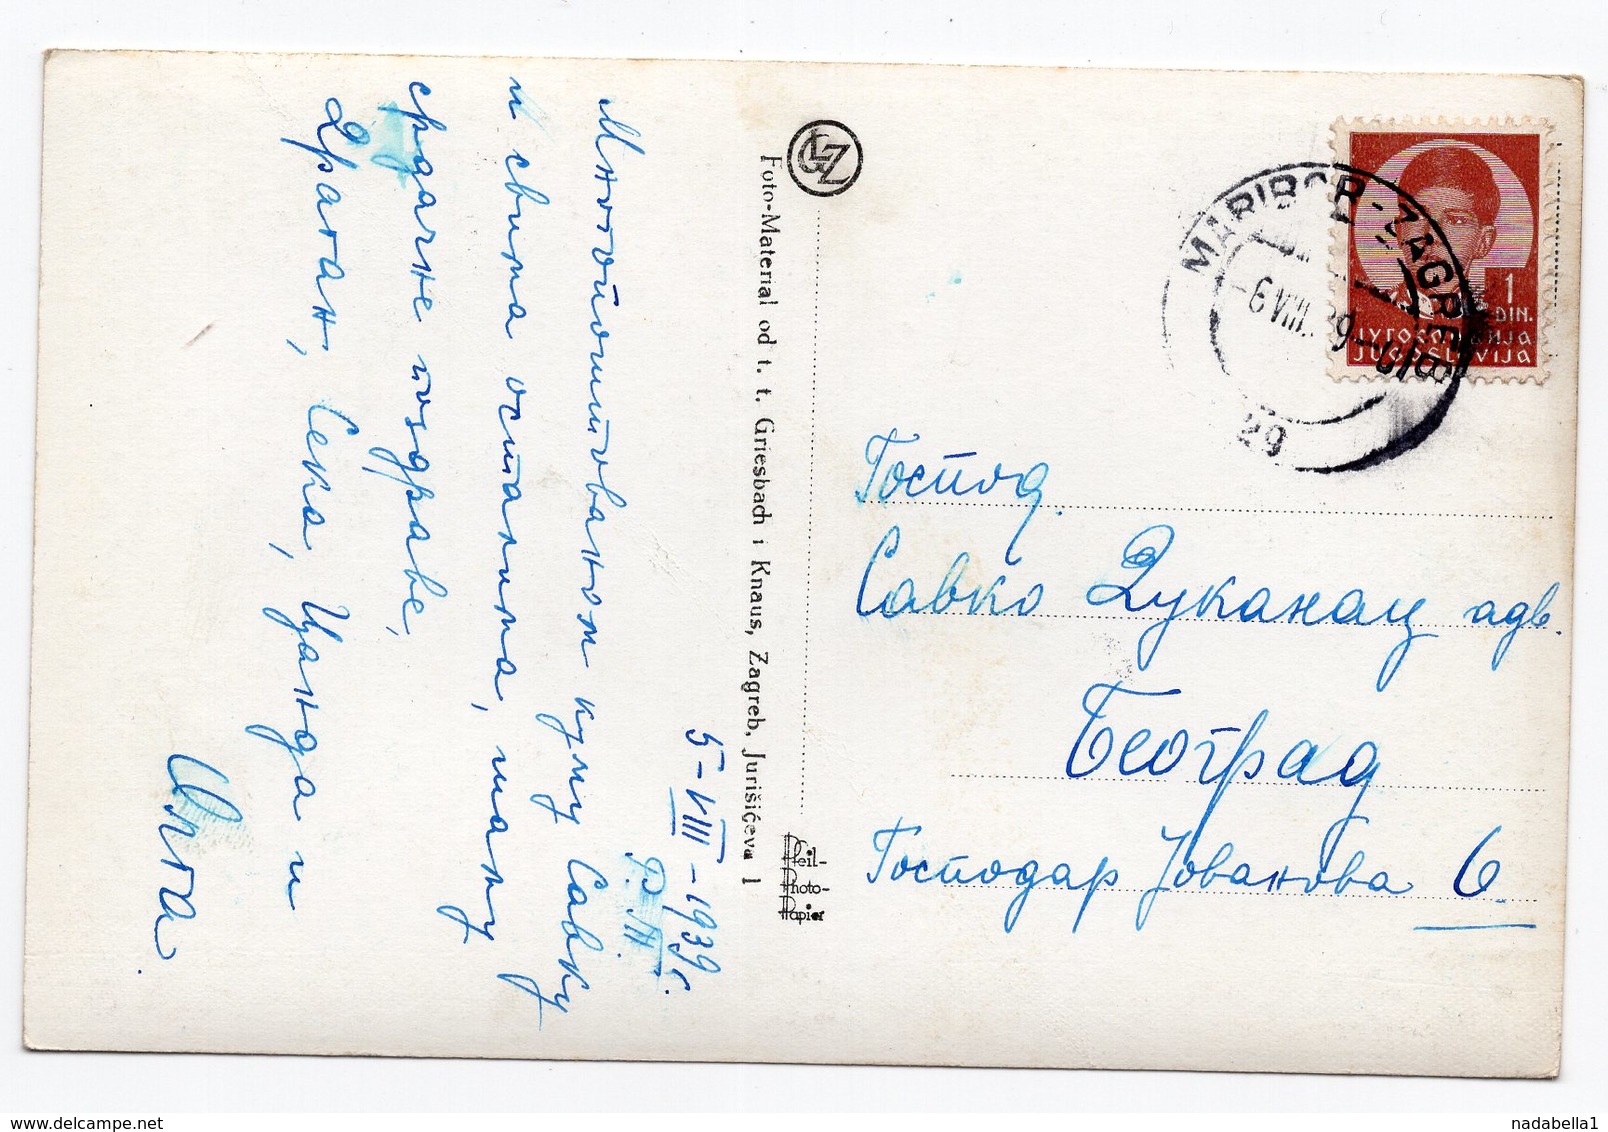 5-VIII-1939 г.
Р. Т.
Многопоштованом куму Савку
и свима осталима, шаљу
срдачне поздраве,
Драган, Сека, Цанда и
Олга.
GKZ
Foto-Material od t. t. Griesbach i Knaus, Zagreb, Jurišićeva 1
Pfeil-
Photo-
Papier
MARIBOR-ZAGREB
6 VIII. 39
29
1
DIN.
ЈУГОСЛАВИЈА
JUGOSLAVIJA
Господ.
Савко Дуканац адв.
Београд
Господар Јованова 6
nadabella1